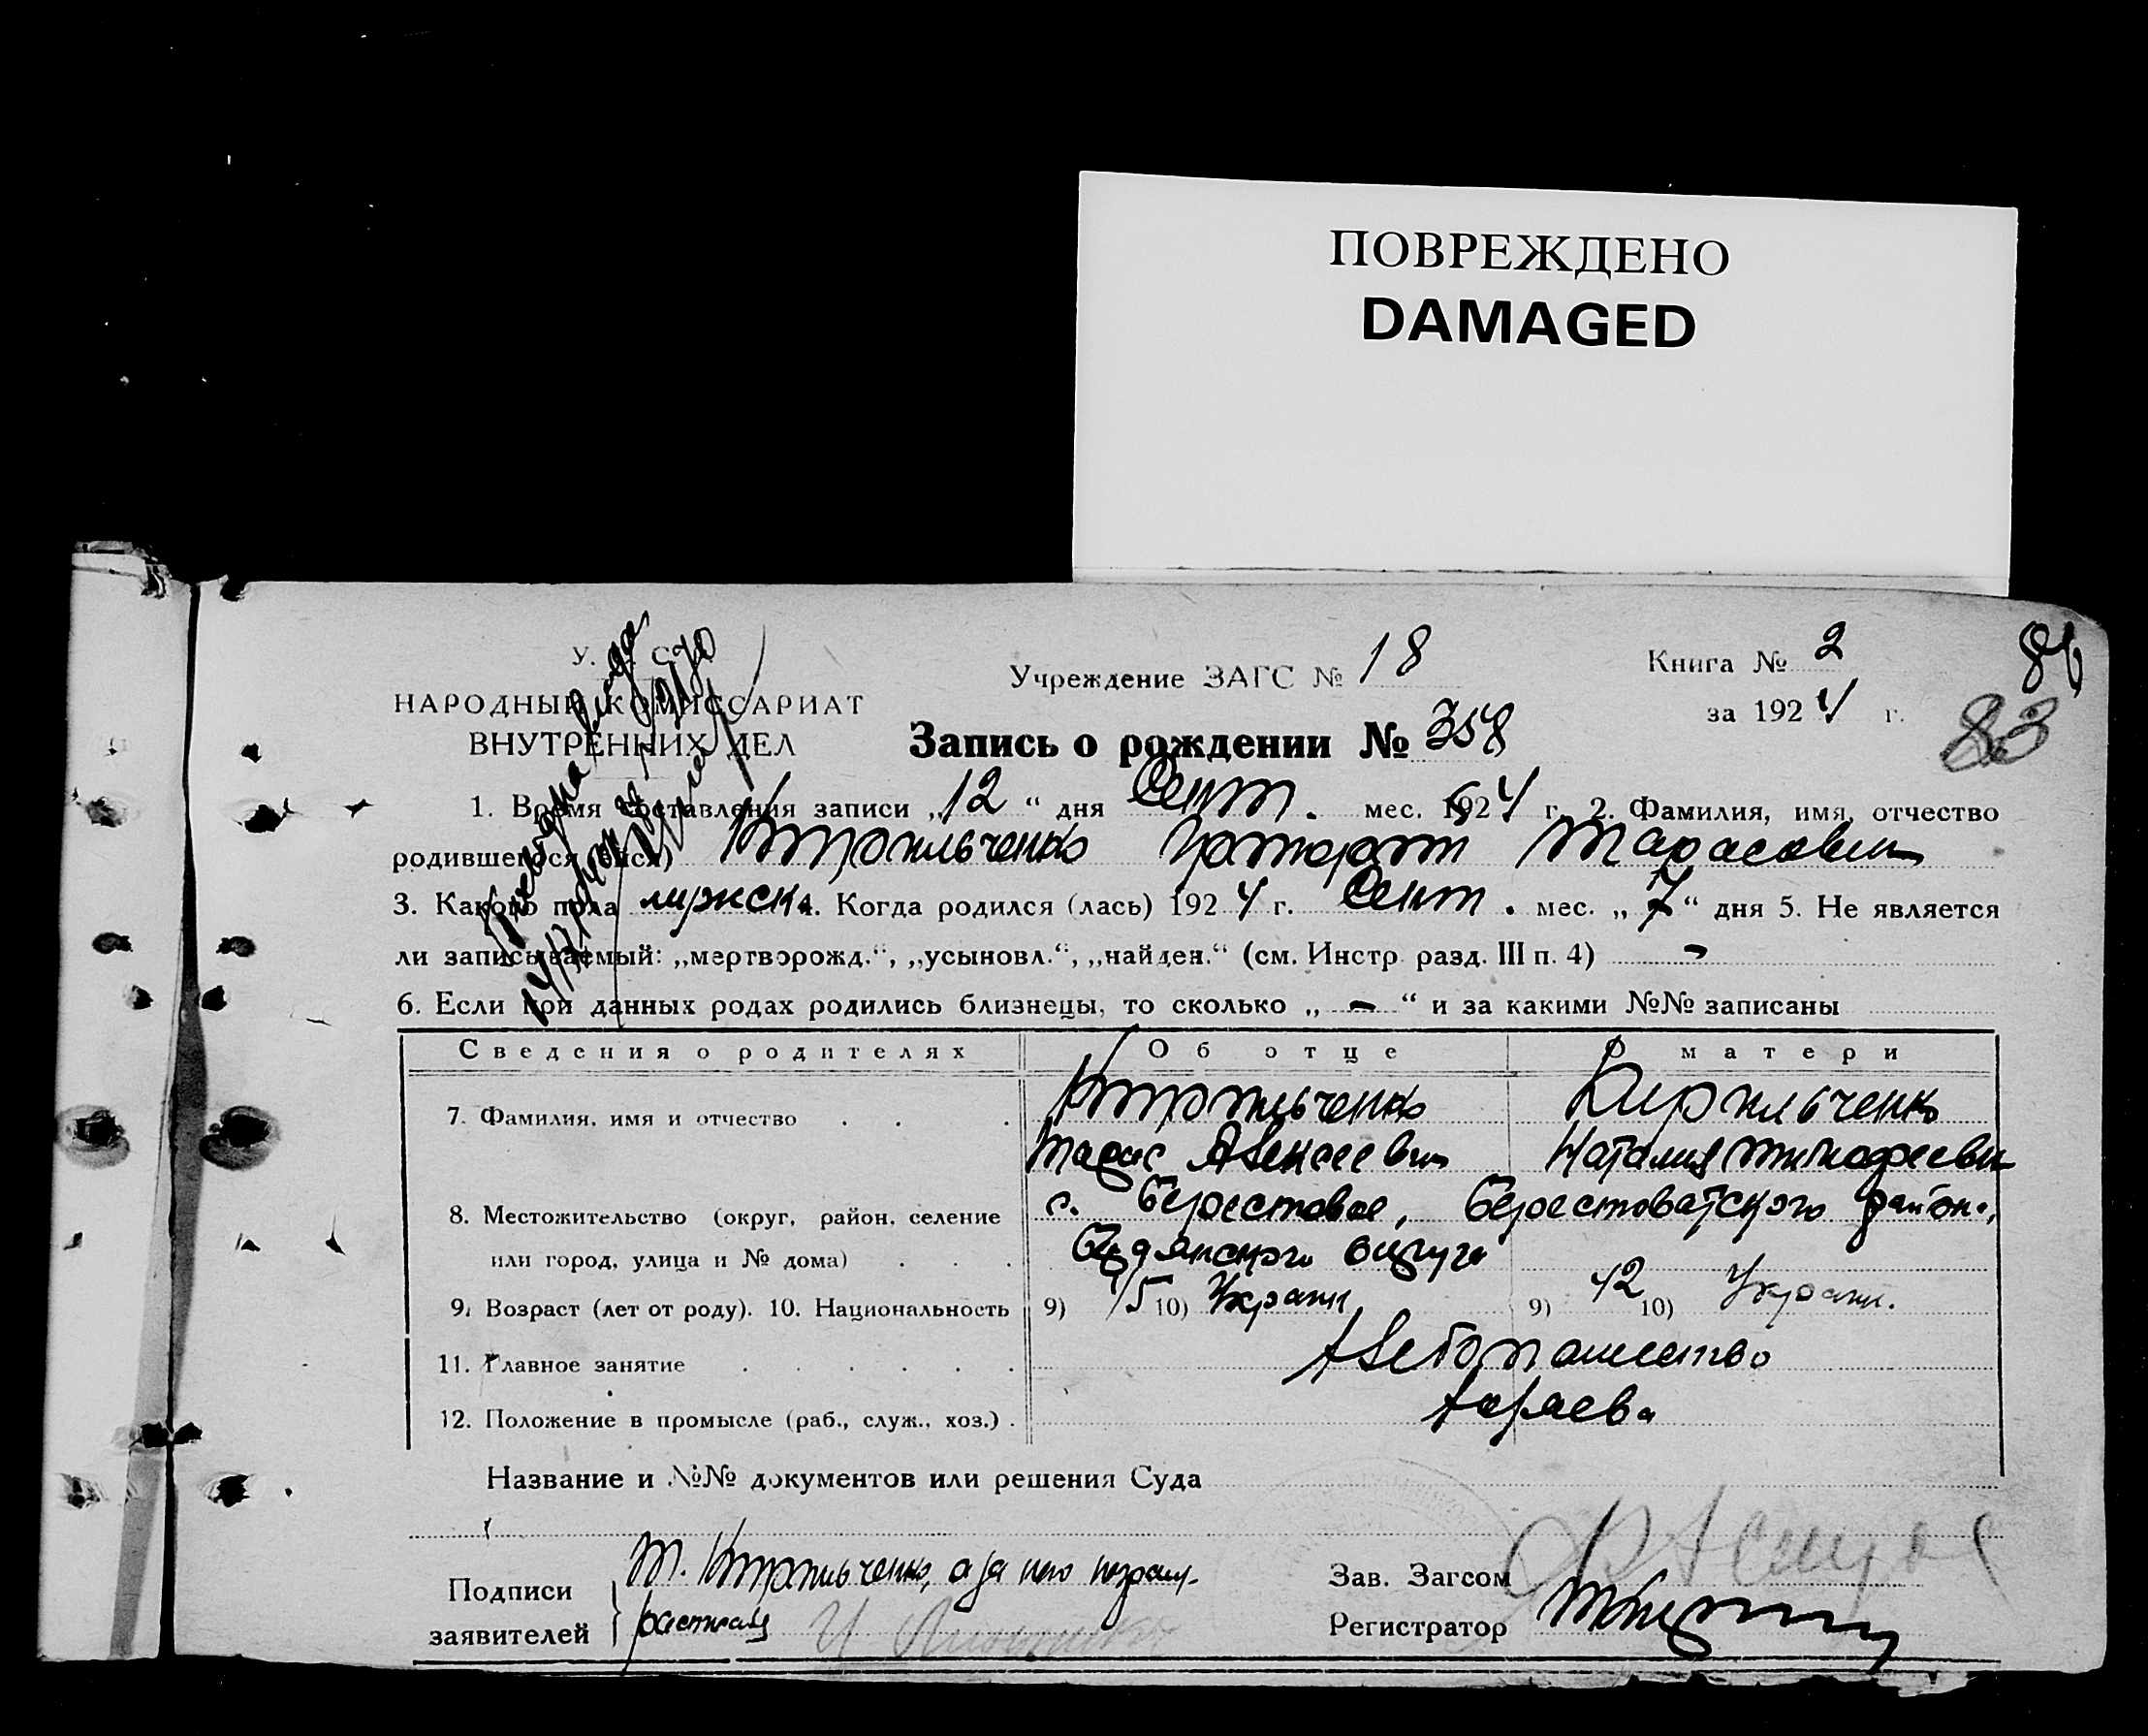 ПОВРЕЖДЕНО
DAMAGED
НАРОДНЫЙ КОМИССАРИАТ
ВНУТРЕННИХ ДЕЛ
Учреждение ЗАГС № 18
Книга № 2
за 1924 г.
83
Запись о рождении № 358
1. Время составления записи „12“ дня Сент. мес. 1924 г. 2. Фамилия, имя, отчество
родившегося (ейся) Кирпильченко Тарасович
3. Какого пола мужск. 4. Когда родился (лась) 1924 г. Сент. мес. „7“ дня 5. Не является
ли записываемый: „мертворожд.“, „усыновл.“, „найден.“ (см. Инстр. разд. III п. 4) -
6. Если при данных родах родились близнецы, то сколько „-“ и за какими №№ записаны
Сведения о родителях Об отце О матери
7. Фамилия, имя и отчество Кирпильченко Кирпильченко
Тарас Алексеевич Наталия Тимофеевн
8. Местожительство (округ, район, селение с. Берестовое, Берестоватского район.,
или город, улица и № дома) Бердянского округа
9. Возраст (лет от роду). 10. Национальность 9) 45 10) Украин. 9) 42 10) Украин.
11. Главное занятие Хлебопашество
12. Положение в промысле (раб., служ., хоз.) хозяева
Название и №№ документов или решения Суда
Подписи
заявителей
Т. Кирпильченко, а за него неграм.
Зав. Загсом
Регистратор